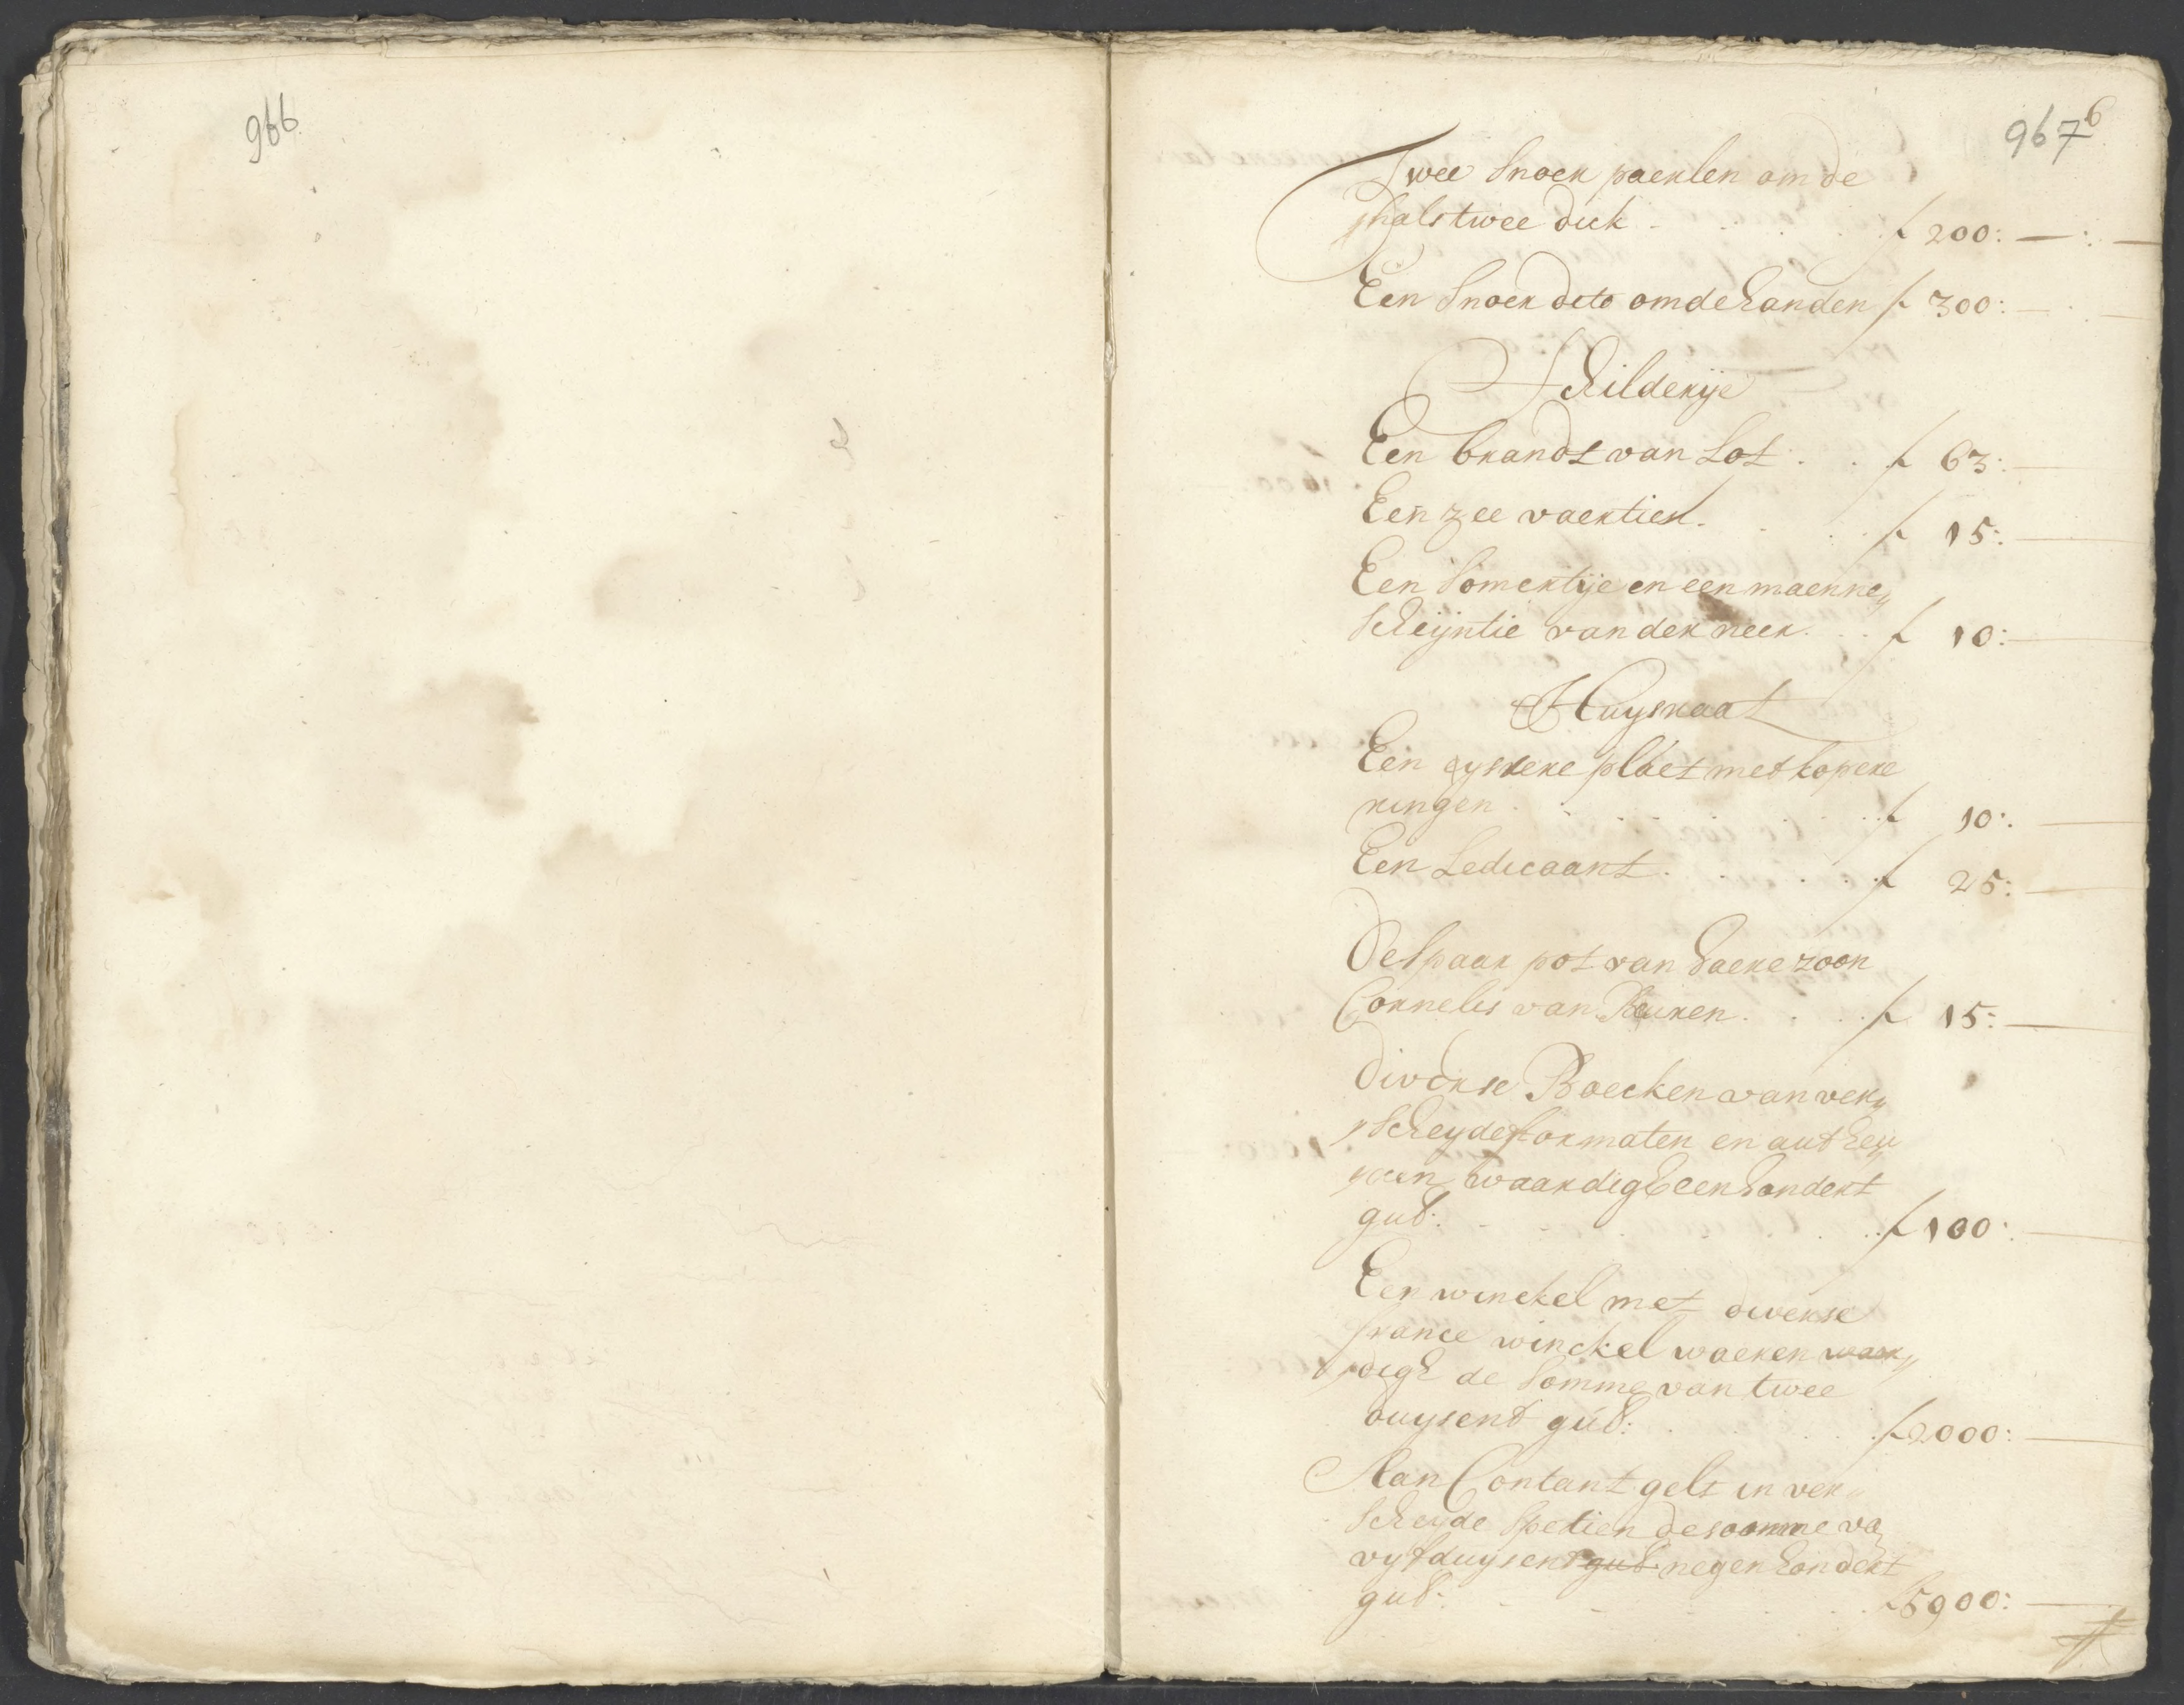 966
967 6
Twee Snoer paerlen om de
hals twee dick f 200:—:—
Een Snoer dito om de handen f 300:—:—
Schilderije
Een brandt van Lot f 63:—
Een zee vaertien f 15:—
Een Somertije en een maenne„
Scheijntie van der neer f 10:—
Huysraat
Een ysere plaet met kopere
ringen f 10:—
Een Ledicaant f 25:—
De Spaar pot van haere zoon
Cornelis van f 15:—
Diverse Boecken van ver„
scheyde formaten en autheu„
ren waardigh een hondert
guld: f 100:—
Een winckel met diverse
france winckel waeren waer„
digh de Somme van twee
duysent guld: f 2000:—
Aan Contant gelt in ver„
Scheyde Spetien de somme va
vyfduysent guld negen hondert
guld: f 5900:—